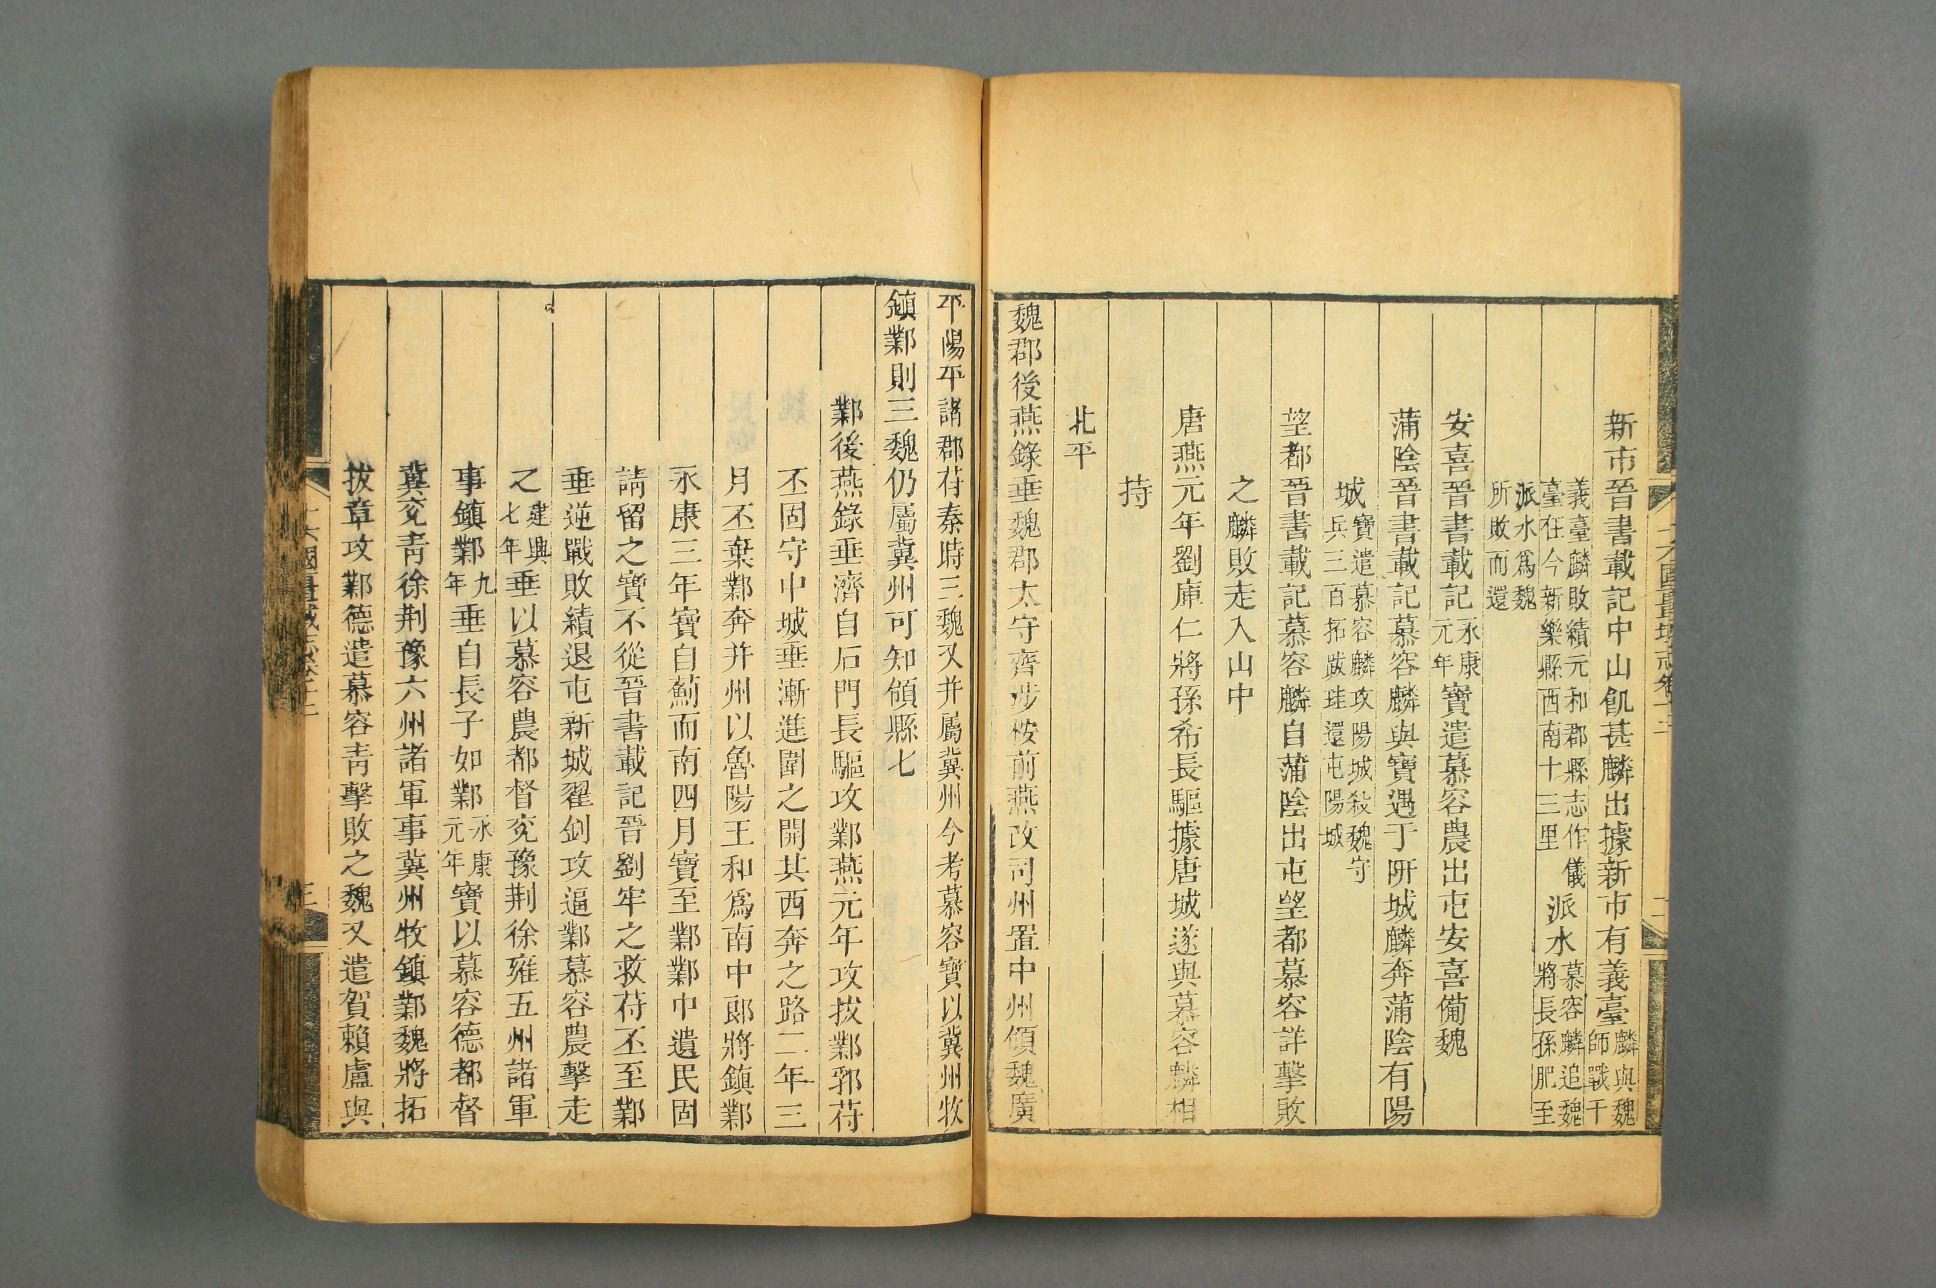 新市晉書載記中山飢甚麟出據新市有義臺麟與魏師戰于
義臺麟敗績元和郡縣志作儀臺在今新樂縣西南十三里派水慕容麟追魏將長孫肥至
派水爲魏所敗而還
安喜晉書載記永康元年寶遣慕容農出屯安喜備魏
蒲陰晉書載記慕容麟與寶遇于阱城麟奔蒲陰有陽
城寶遣慕容麟攻陽城殺魏守兵三百拓跋珪還屯陽城
望都晉書載記慕容麟自蒲陰出屯望都慕容詳擊敗
之麟敗走入山中
唐燕元年劉庫仁將孫希長驅據唐城遂與慕容麟相
持
北平
魏郡後燕錄垂魏郡太守齊涉桉前燕改司州置中州領魏廣
平陽平諸郡苻秦時三魏又并屬冀州今考慕容寶以冀州牧
鎮鄴則三魏仍屬冀州可知領縣七
鄴後燕錄垂濟自石門長驅攻鄴燕元年攻拔鄴郛苻
丕固守中城垂漸進圍之開其西奔之路二年三
月丕棄鄴奔并州以魯陽王和爲南中郎將鎮鄴
永康三年寶自薊而南四月寶至鄴鄴中遺民固
請留之寶不從晉書載記晉劉牢之救苻丕至鄴
垂逆戰敗績退屯新城翟釗攻逼鄴慕容農擊走
之建興七年垂以慕容農都督兗豫荆徐雍五州諸軍
事鎮鄴九年垂自長子如鄴永康元年寶以慕容德都督
冀兗青徐荆豫六州諸軍事冀州牧鎮鄴魏將拓
拔章攻鄴德遣慕容青擊敗之魏又遣賀賴盧與